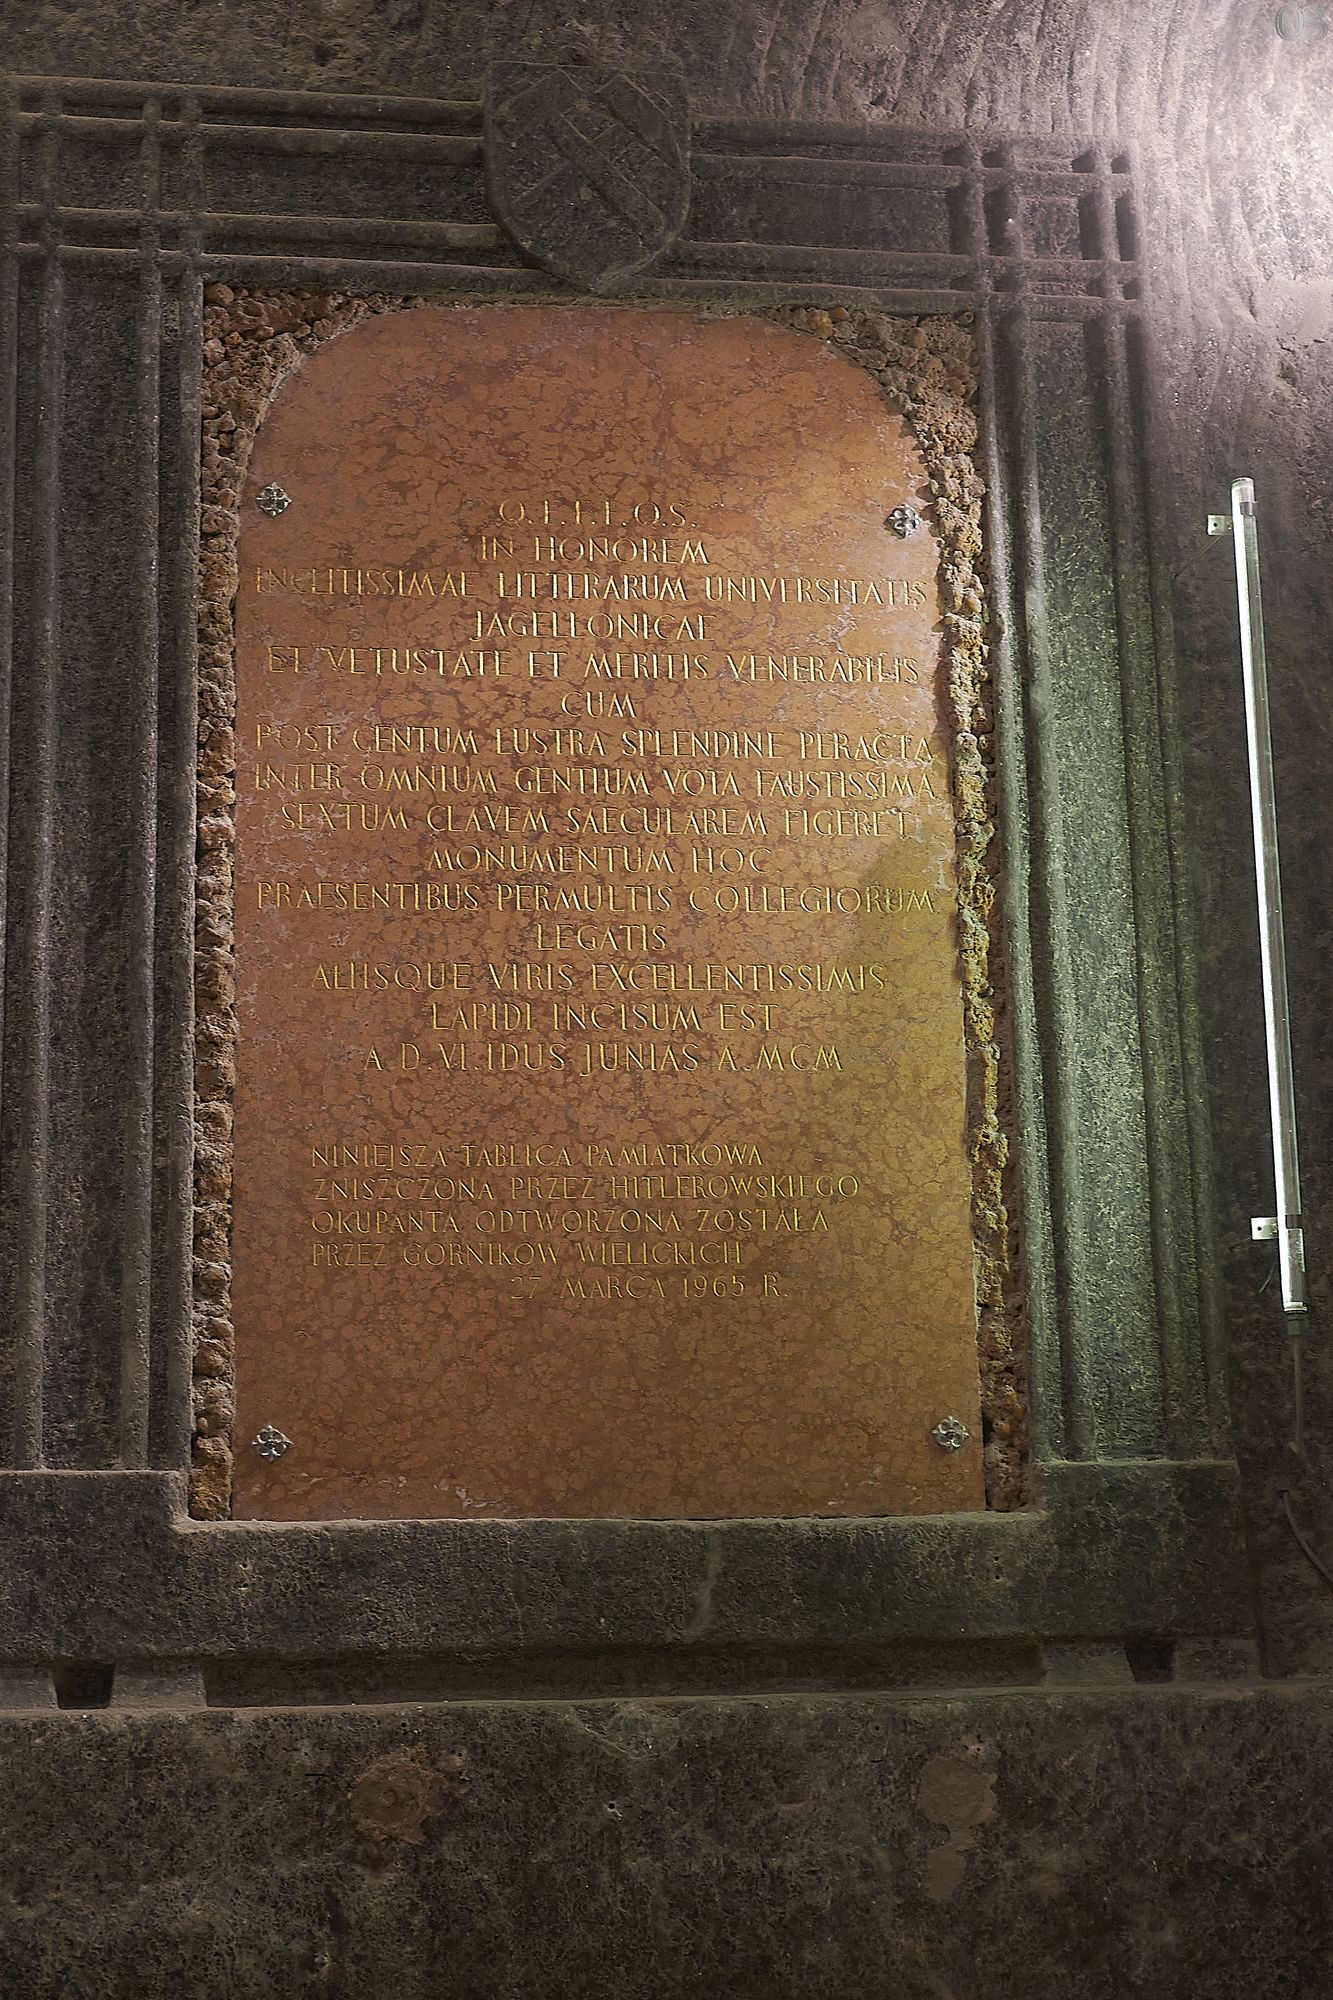 Q.F.F.F.Q.S.
IN HONOREM
INCLITISSIMAE LITTERARUM UNIVERSITATIS
JAGELLONICAE
ET VETUSTATE ET MERITIS VENERABILIS
CUM
POST CENTUM LUSTRA SPLENDINE PERACTA
INTER OMNIUM GENTIUM VOTA FAUSTISSIMA
SEXTUM CLAVEM SAECULAREM FIGERET
MONUMENTUM HOC
PRAESENTIBUS PERMULTIS COLLEGIORUM
LEGATIS
ALIISQUE VIRIS EXCELLENTISSIMIS
LAPIDI INCISUM EST
A.D.VI.IDUS JUNIAS A.MCM
NINIEJSZA TABLICA PAMIATKOWA
ZNISZCZONA PRZEZ HITLEROWSKIEGO
OKUPANTA ODTWORZONA ZOSTAŁA
PRZEZ GÓRNIKÓW WIELICKICH
27 MARCA 1965 R.